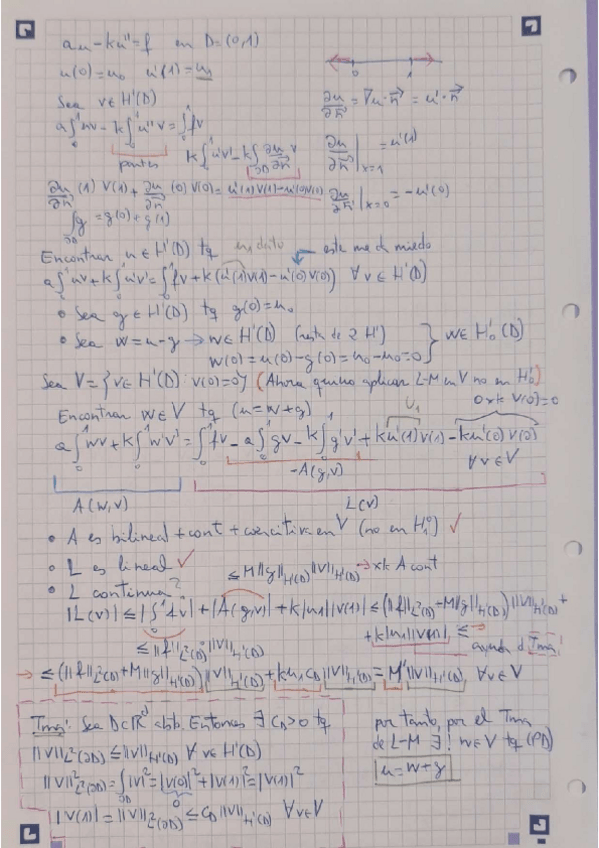 au - ku'' = f en D = (0,1)
u(0) = u₀ u'(1) = u₁
Sea v ∈ H¹(D)
a∫₀¹ uv - k∫₀¹ u''v = ∫₀¹ fv
partes
k∫₀¹ u'v' - k∫_∂D ∂u/∂n⃗ v
0 1
∂u/∂n⃗ = ∇u·n⃗ = u'·n⃗
∂u/∂n⃗ |ₓ₌₁ = u'(1)
∂u/∂n⃗ |ₓ₌₀ = -u'(0)
∂u/∂n⃗ (1) v(1) + ∂u/∂n⃗ (0) v(0) = u'(1)v(1) - u'(0)v(0)
∫_∂D g = g(0) + g(1)
Encontrar u ∈ H¹(D) tq este me da miedo
a∫₀¹ uv + k∫₀¹ u'v' = ∫₀¹ fv + k(u'(1)v(1) - u'(0)v(0)) ∀v ∈ H¹(D)
• Sea g ∈ H¹(D) tq g(0) = u₀
• Sea w = u - g → w ∈ H¹(D) (resta de 2 H¹)
w(0) = u(0) - g(0) = u₀ - u₀ = 0 } w ∈ H¹₀(D)
Sea V = {v ∈ H¹(D) : v(0) = 0} (Ahora quiero aplicar L-M en V no en H¹₀)
Encontrar w ∈ V tq (u = w + g) u₁ 0 xk v(0) = 0
a∫₀¹ wv + k∫₀¹ w'v' = ∫₀¹ fv - a∫₀¹ gv - k∫₀¹ g'v' + ku'(1)v(1) - ku'(0)v(0)
-A(g,v) ∀v ∈ V
A(w,v) L(v)
• A es bilineal + cont + coercitiva en V (no en H¹₀) ✓
• L es lineal ✓
≤ M||g||_H¹(D) ||v||_H¹(D) → xk A cont
• L continua?
|L(v)| ≤ |∫₀¹ fv| + |A(g,v)| + k|u₁||v(1)| ≤ (||f||_L²(D) + M||g||_H¹(D)) ||v||_H¹(D) +
+ k|u₁||v(1)| ≤
≤ ||f||_L²(D) ||v||_H¹(D)
ayuda d Tma!
→ ≤ (||f||_L²(D) + M||g||_H¹(D)) ||v||_H¹(D) + ku₁C_D ||v||_H¹(D) = M'||v||_H¹(D), ∀v ∈ V
Tma: Sea D⊂ℝᵈ abto. Entonces ∃ C_D > 0 tq
||v||_L²(∂D) ≤ ||v||_H¹(D) ∀v ∈ H¹(D)
||v||²_L²(∂D) = ∫_∂D |v|² = |v(0)|² + |v(1)|² = |v(1)|²
0
|v(1)| = ||v||_L²(∂D) ≤ C_D ||v||_H¹(D) ∀v ∈ V
por tanto, por el Tma
de L-M ∃! w ∈ V tq (PD)
u = w + g